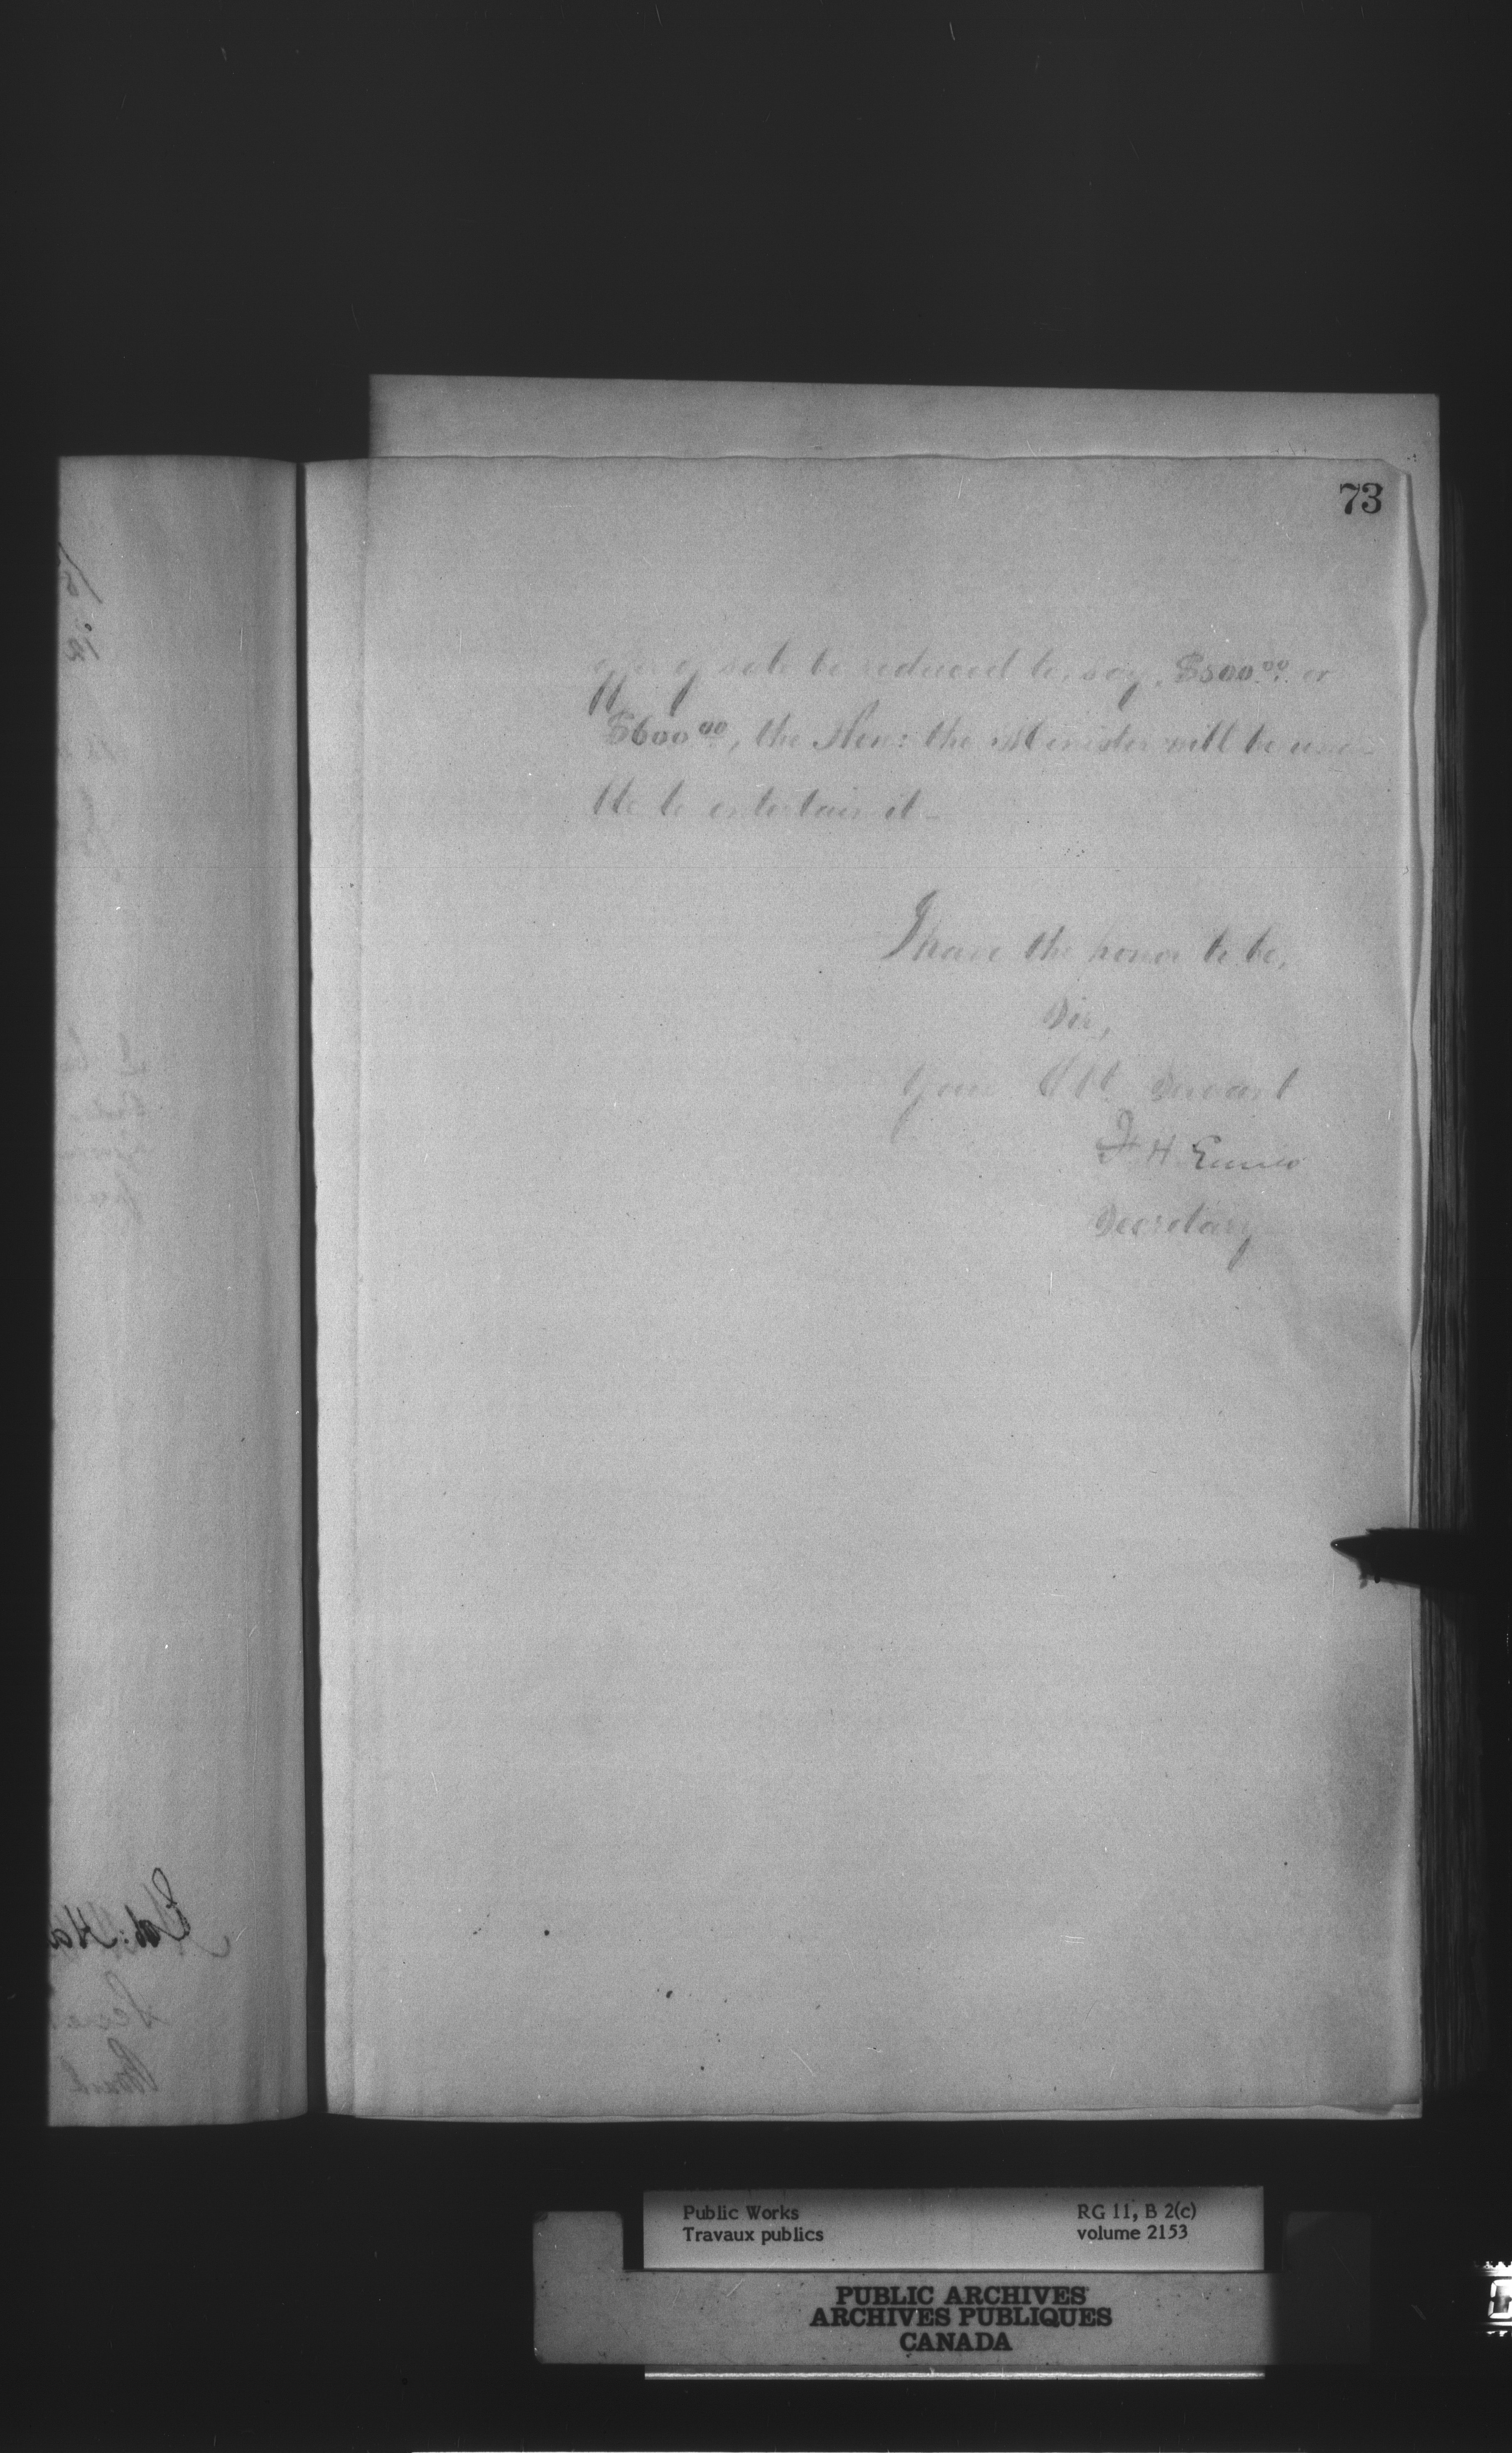 73
offer of sale be reduced to, say, $500.00 or
$600.00, the Hon: the Minister will be una-
ble to entertain it-
I have the honor to be,
Sir,
Your Obt. Servant
F. H. Ennis
Secretary
Public Works
Travaux publics
RG 11, B 2(c)
volume 2153
PUBLIC ARCHIVES
ARCHIVES PUBLIQUES
CANADA